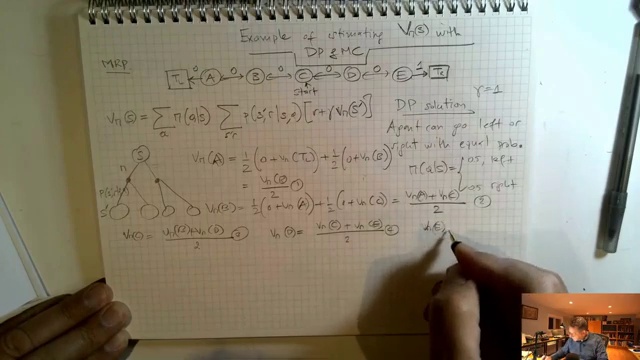 Example of estimating Vπ(s) with
DP & MC
MRP
T₀ ←0 A ←0→ B ←0→ C ←0→ D ←0→ E 1→
start
Vπ(s) = Σₐ π(a|s) Σ p(s',r|s,a) [r + γ Vπ(s')]
DP solution γ=1
Agent can go left or
right with equal prob.
π(a|s) = { 0.5, left
0.5 right
S
π
s'
Vπ(A) = 1/2 (0 + Vπ(T₀)) + 1/2 (0 + Vπ(B))
= Vπ(B)/2 ①
Vπ(B) = 1/2 (0 + Vπ(A)) + 1/2 (0 + Vπ(C)) = (Vπ(A) + Vπ(C))/2 ②
Vπ(C) = (Vπ(B) + Vπ(D))/2 ③ Vπ(D) = (Vπ(C) + Vπ(E))/2 ④ Vπ(E)